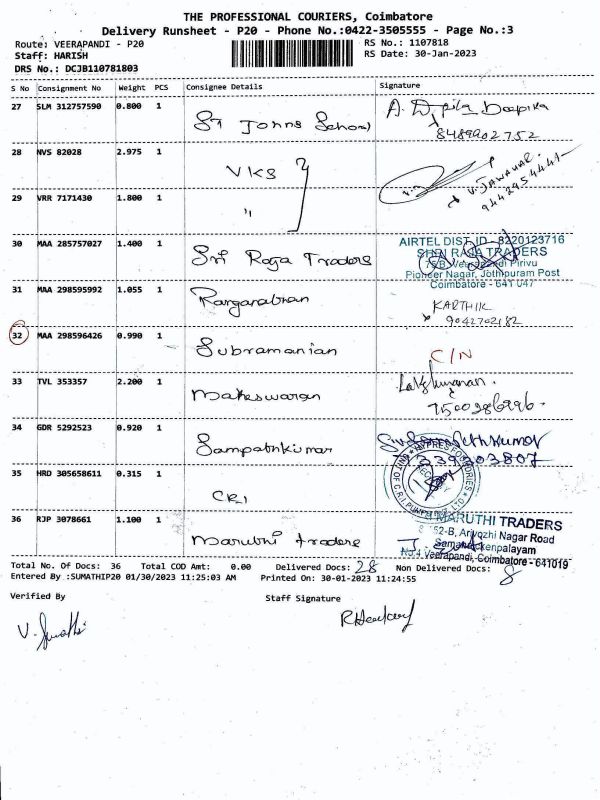 THE PROFESSIONAL COURIERS, Coimbatore
Delivery Runsheet - P20 - Phone No.:0422-3505555 - Page No.:3
Route: VEERAPANDI - P20
RS No.: 1107818
Staff: HARISH
RS Date: 30-Jan-2023
DRS No.: DCJB110781803
S No Consignment No Weight PCS Consignee Details Signature
27 SLM 312757590 0.800 1 ST Johns School A. Deepika
8489902752
28 NVS 82028 2.975 1 VKS V. JAWAHAR.
9442954441
29 VRR 7171430 1.800 1 "
30 MAA 285757027 1.400 1 Sri Raja Traders AIRTEL DIST ID - 8220123716
SHRI RAJA TRADERS
Pirivu
Pioneer Nagar, Jothipuram Post
Coimbatore - 641 047
31 MAA 298595992 1.055 1 Ranganathan KARTHIK
9042702182
32 MAA 298596426 0.990 1 Subramanian C/N
33 TVL 353357 2.200 1 Maheswaran Lakshmanan.
34 GDR 5292523 0.920 1 Sampathkumar
35 HRD 305658611 0.315 1 CRI
36 RJP 3078661 1.100 1 Maruthi traders MARUTHI TRADERS
52-B, Arivozhi Nagar Road
Veerapandi, Coimbatore - 641019
Total No. Of Docs: 36 Total COD Amt: 0.00 Delivered Docs: 28 Non Delivered Docs: 8
Entered By :SUMATHIP20 01/30/2023 11:25:03 AM Printed On: 30-01-2023 11:24:55
Verified By Staff Signature
V. Sumathi